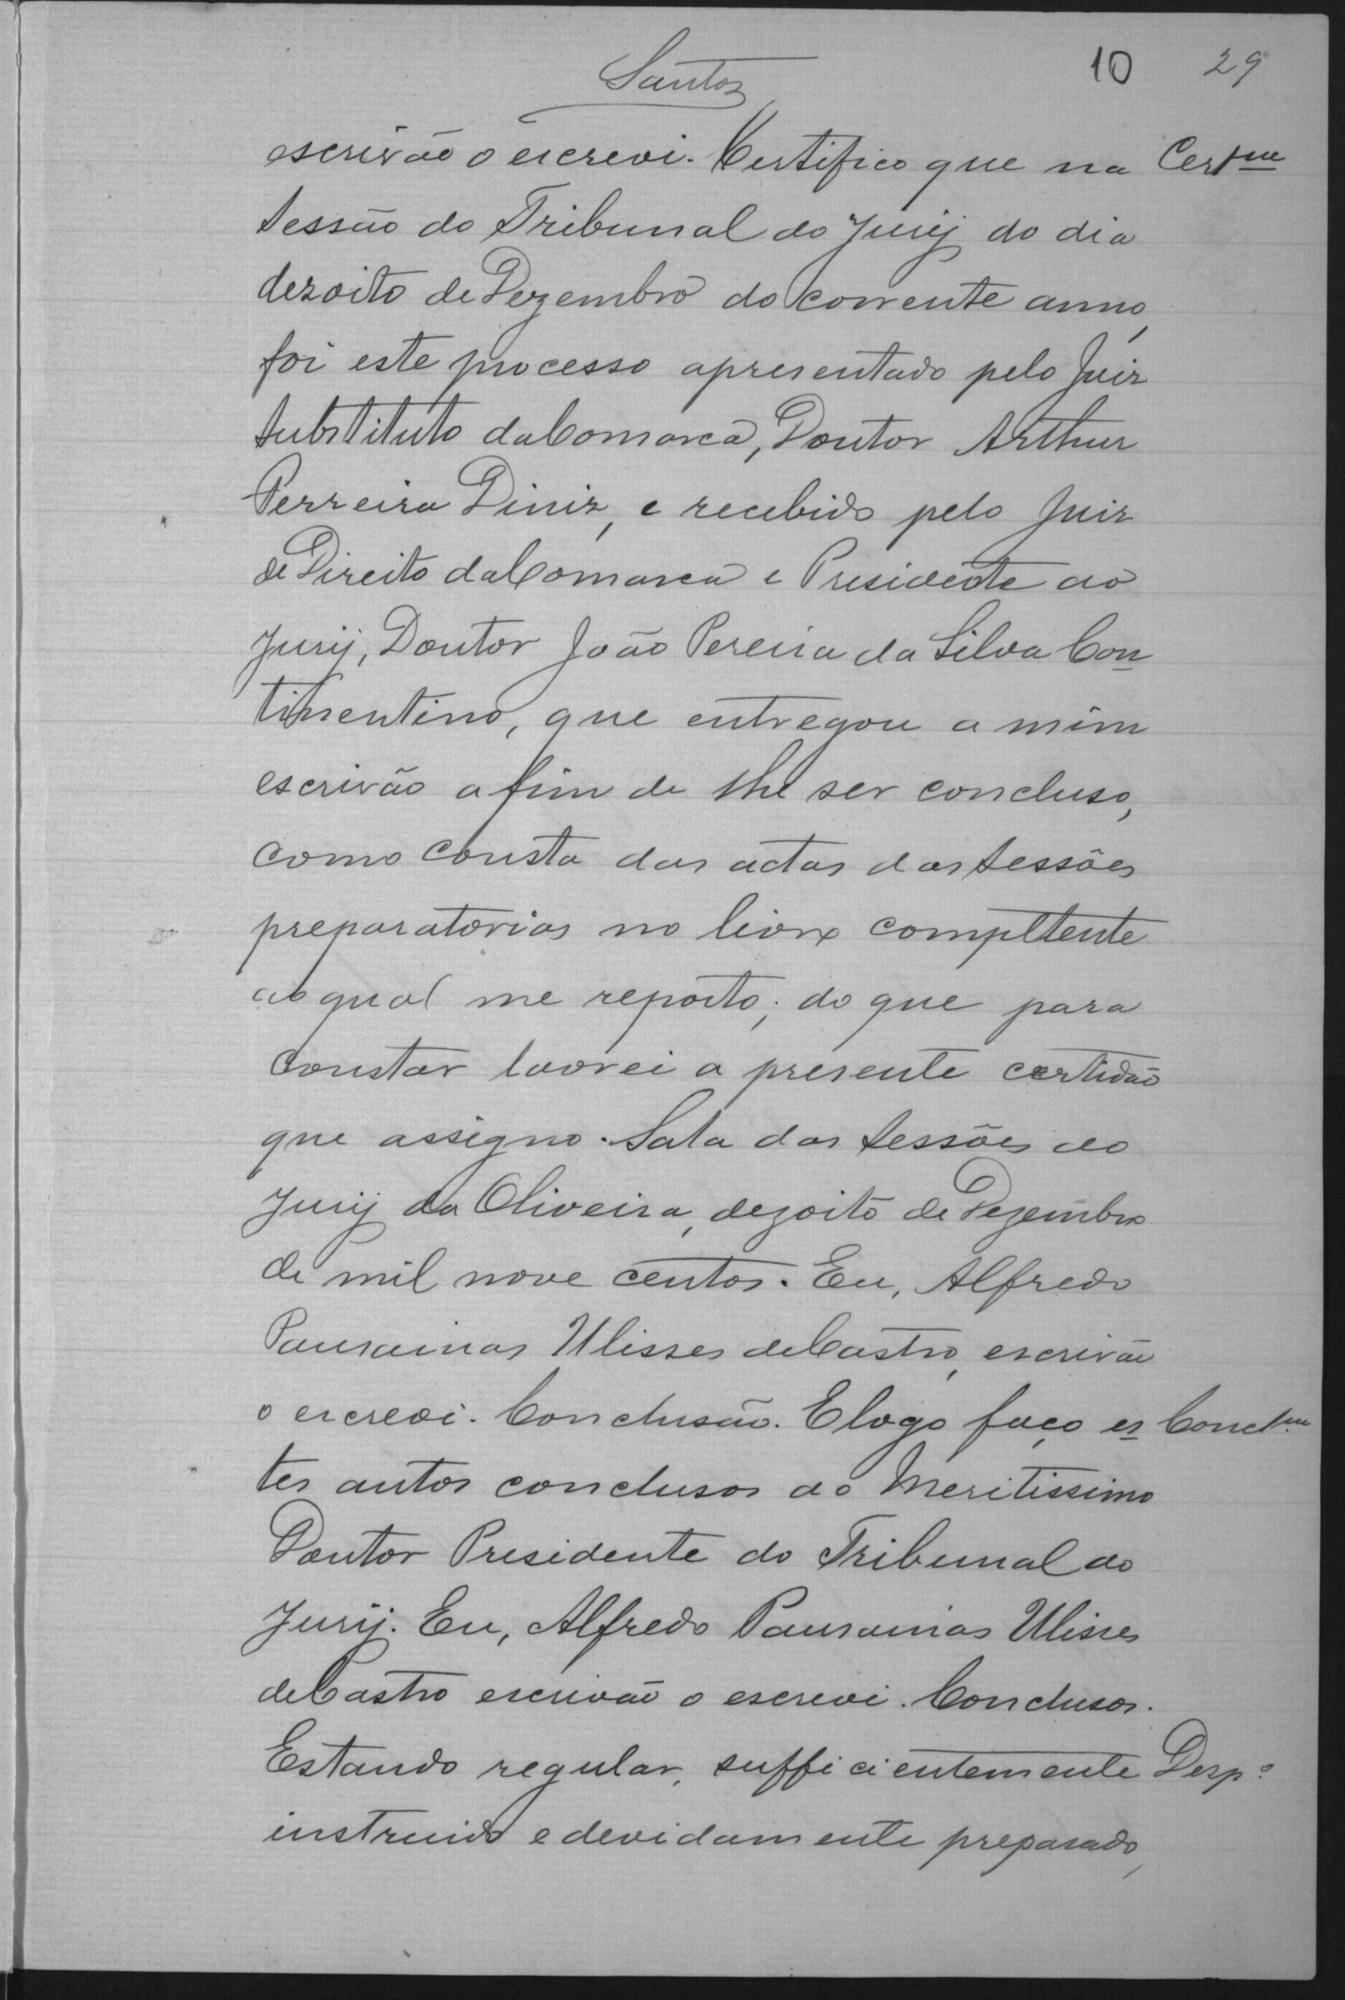 Santos
10 29
escrivão o escrevi. Certifico que na Cert.ᵐᵉ
sessão do Tribunal do Jury do dia
dezoito de Dezembro do corrente anno,
foi este processo apresentado pelo Juiz
substituto da Comarca, Doutor Arthur
Ferreira Diniz, e recebido pelo Juiz
de Direito da Comarca e Presidente do
Jury, Doutor João Pereira da Silva Con
tinentino, que entregou a mim
escrivão a fim de lhe ser concluso,
como consta das actas das sessões
preparatorias no livro competente
ao qual me reporto; do que para
constar lavrei a presente certidão
que assigno. Sala das sessões do
Jury da Oliveira, dezoito de Dezembro
de mil nove centos. Eu, Alfredo
Pausanias Ulisses de Castro, escrivão
o escrevi. Conclusão. E logo faço es Concl.
tes autos conclusos ao Meritissimo
Doutor Presidente do Tribunal do
Jury. Eu, Alfredo Pausanias Ulisses
de Castro escrivão o escrevi. Conclusos.
Estando regular, sufficientemente Desp.º
instruido e devidamente preparado,